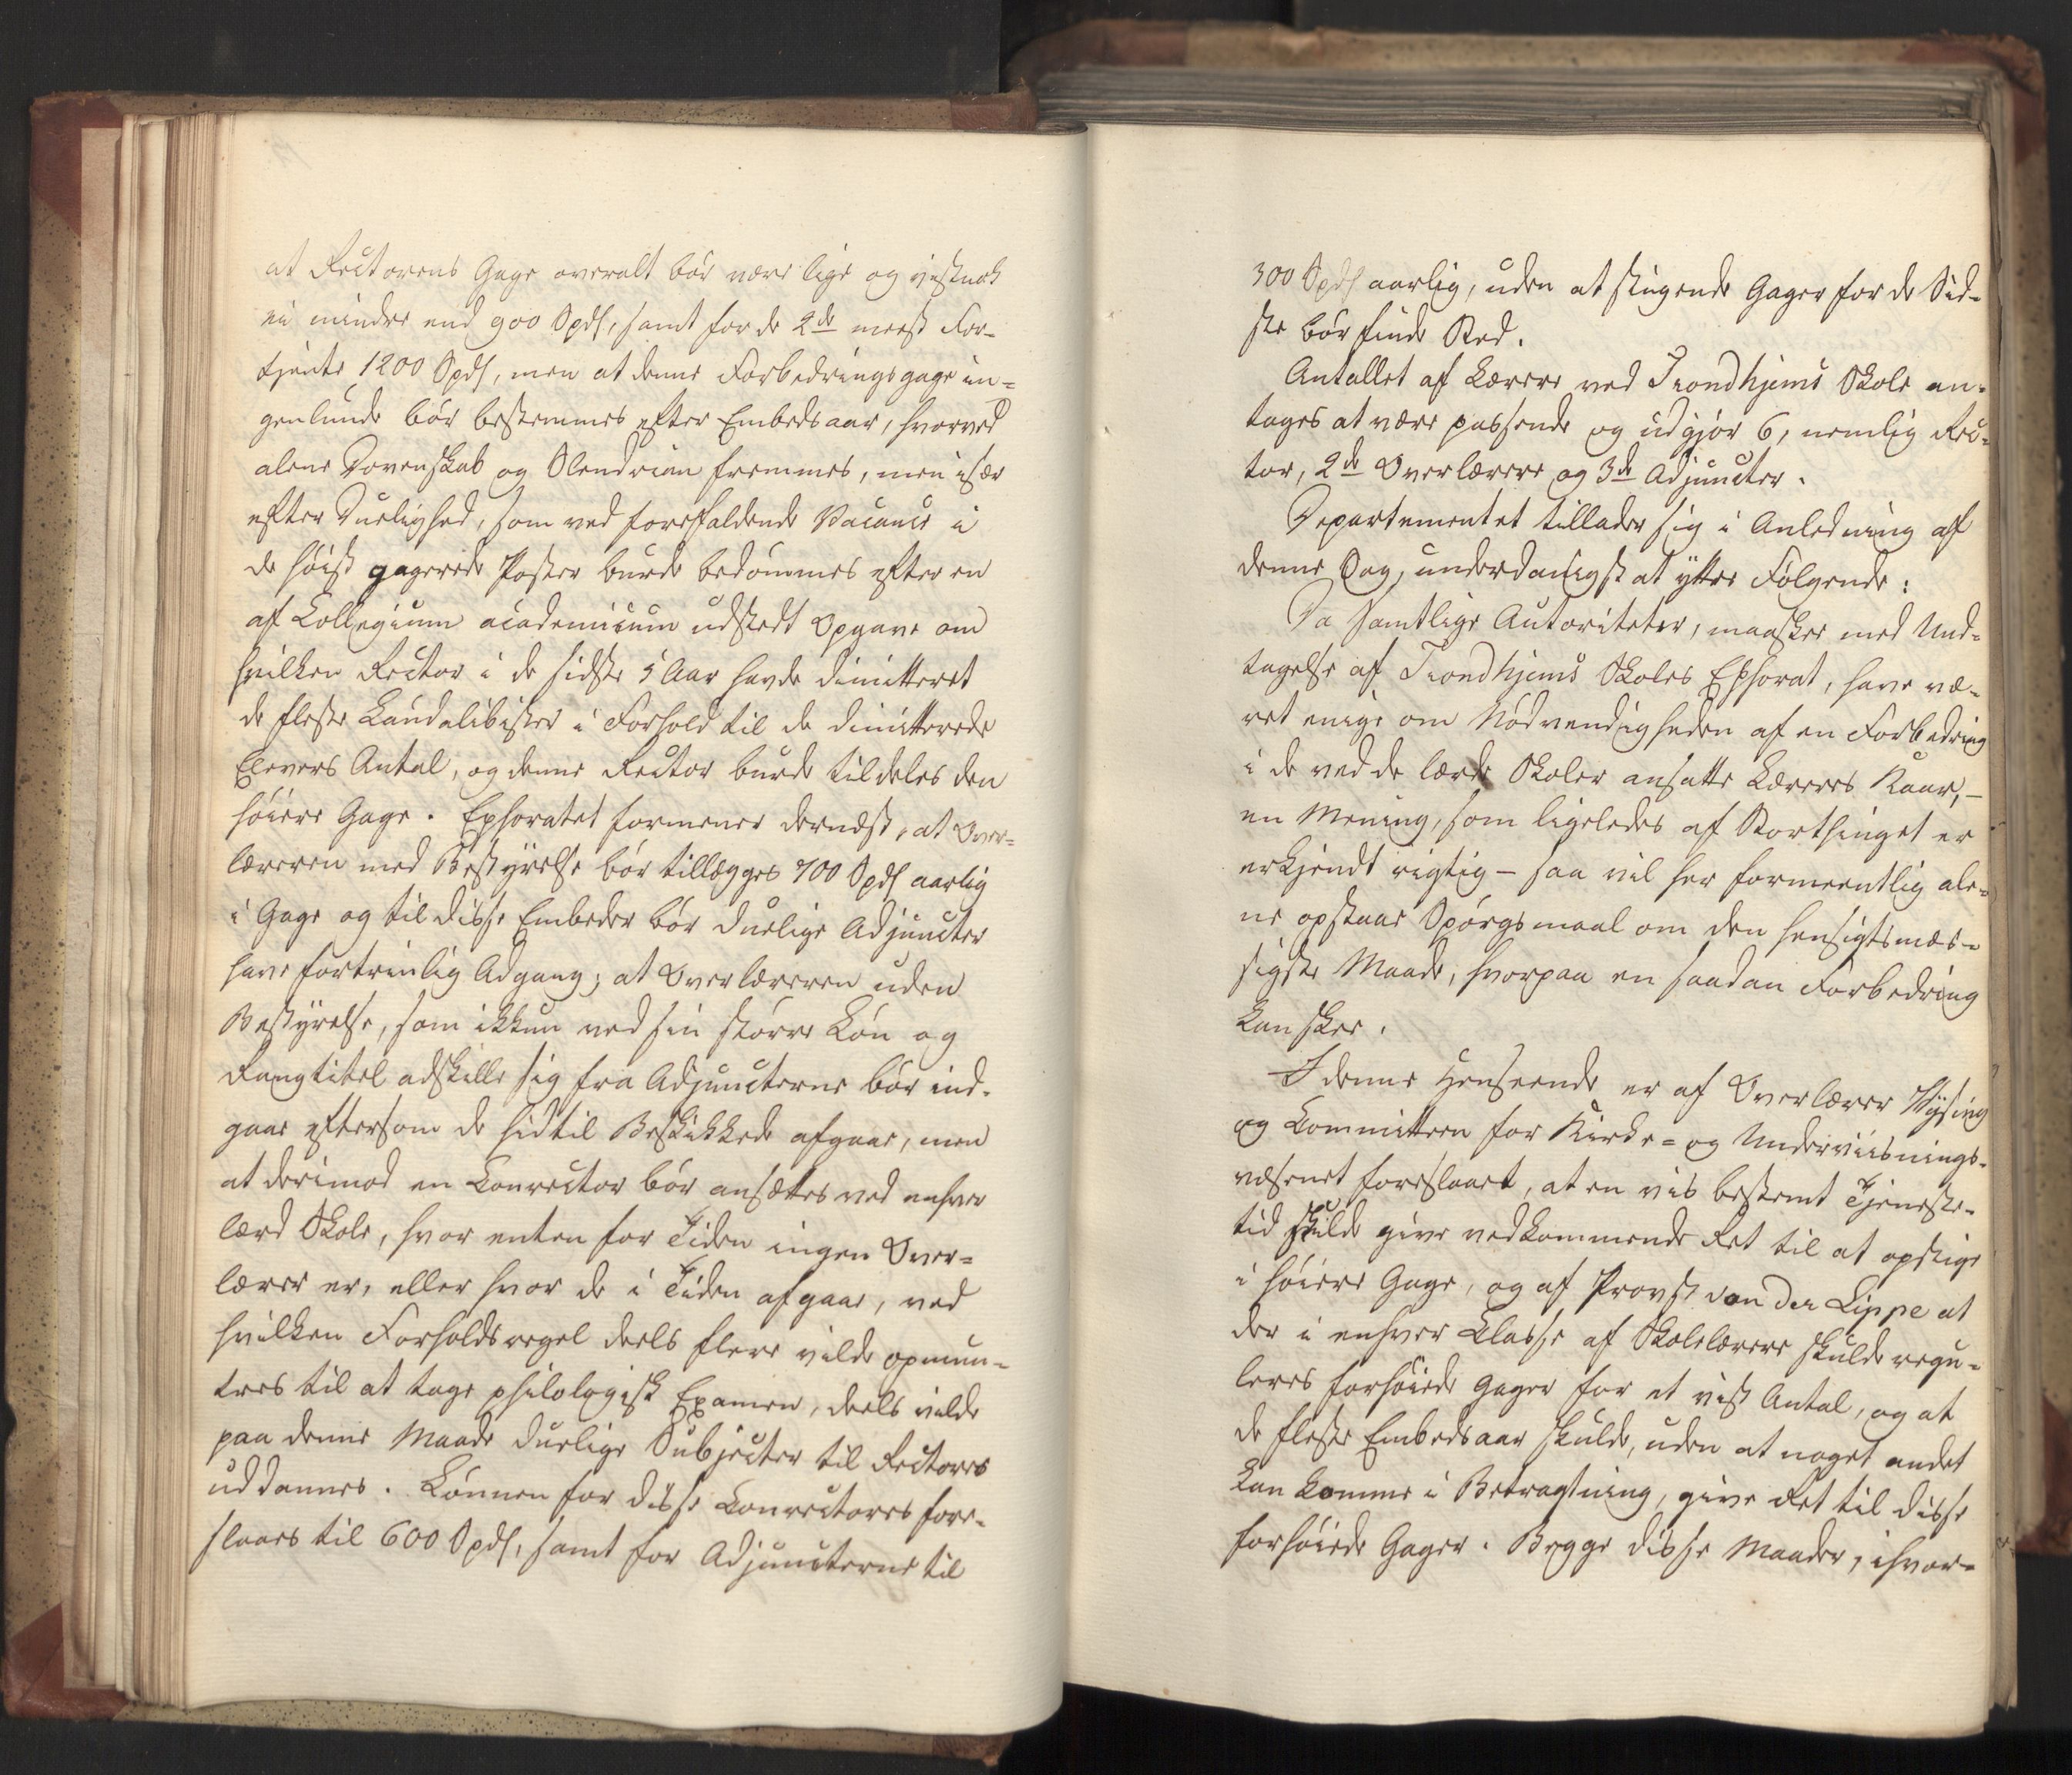 at Rectorens Gage overalt bör være lige og vistnok
ei mindre end 900 Spdl, samt for de 2de meest For-
tjente 1200 Spdl, men at denne Forbedringsgage in-
genlunde bör bestemmes efter Embedsaar, hvorved
alene Dovenskab og Slendrian fremmes, men især
efter Duelighed, som ved forefaldende Vacance i
de höist gagerede Poster burde bedömmes efter en
af Collegium academicum udstedt Opgave om
hvilken Rector i de sidste 5 Aar havde dimitteret
de fleste Laudabilister i Forhold til de dimitterede
Elevers Antal, og denne Rector burde tildeles den
höiere Gage. Ephoratet formener dernæst, at Over-
læreren med Bestyrelse bör tillægges 700 Spdl aarlig
i Gage og til disse Embeder bör duelige Adjuncter
have fortrinlig Adgang; at Overlæreren uden
Bestyrelse, som ikkun ved sin större Lön og
Rangtitel adskille sig fra Adjuncterne bör ind-
gaae eftersom de hidtil Beskikkede afgaae, men
at derimod en Conrector bör ansættes ved enhver
lærd Skole, hvor enten for Tiden ingen Over-
lærer er, eller hvor de i Tiden afgaae, ved
hvilken Forholdsregel deels flere vilde opmun-
tres til at tage philologisk Examen, deels vilde
paa denne Maade duelige Subjecter til Rectorer
uddannes. Lönnen for disse Conrectorer fore-
slaaes til 600 Spdl, samt for Adjuncterne til
300 Spdl aarlig, uden at stigende Gager for de Sid-
ste bör finde Sted.
Antallet af Lærere ved Trondhjems Skole an-
tages at være passende og udgjör 6, nemlig Rec-
tor, 2de Overlærere og 3de Adjuncter.
Departementet tillader sig i Anledning af
denne Sag, underdanigst at yttre Fölgende:
Da samtlige Autoriteter, maaskee med Und-
tagelse af Trondhjems Skoles Ephorat, have væ-
ret enige om Nödvendigheden af en Forbedring
i de ved de lærde Skoler ansatte Læreres Kaar, -
en Mening, som ligeledes af Storthinget er
erkjendt rigtig - saa vil her formeentlig ale-
ne opstaae Spörgsmaal om den hensigtsmæs-
sigste Maade, hvorpaa en saadan Forbedring
kan skee.
I denne Henseende er af Overlærer Thysing
og Committeen for Kirke- og Underviisnings-
væsenet foreslaaet, at en vis bestemt Tjeneste-
tid skulde give vedkommende Ret til at opstige
i höiere Gage, og af Provst von der Lippe at
der i enhver Classe af Skolelærere skulde regu-
leres forhöiede Gager for et vist Antal, og at
de fleste Embedsaar skulde, uden at noget andet
kan komme i Betragtning, give Ret til disse
forhöiede Gager. Begge disse Maader, ihvor-